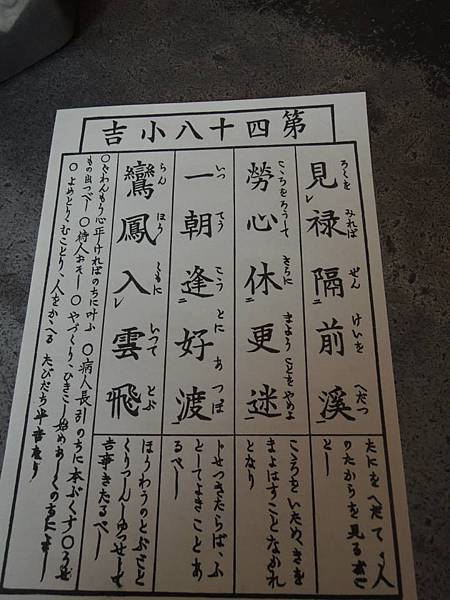 第四十八小吉
見禄隔前溪
ろくを みれば ぜん けいを へだつ
たにをへだて、人
のたからを見るごと
し
勞心休更迷
こころをろうして さらに まようことをやめよ
こころをいため、きを
まよはすことなかれ
となり
一朝逢好渡
いつ てう こう とに あつば
トせつきたらば、ふ
としてよきことあ
るべし
鸞鳳入雲飛
らん ほう くもに いつて とぶ
ほうわうのとぶごと
くりつしんしゆつせして
吉事きたるべし
○ぐわんもう心正しければのちに叶ふ ○病人長引のちに本ぶくす ○うせ
もの出づべし ○待人おそし ○やづくり、ひきこし始めあしく
○よめとり、むことり、人をかゝへる たびだち半吉なり